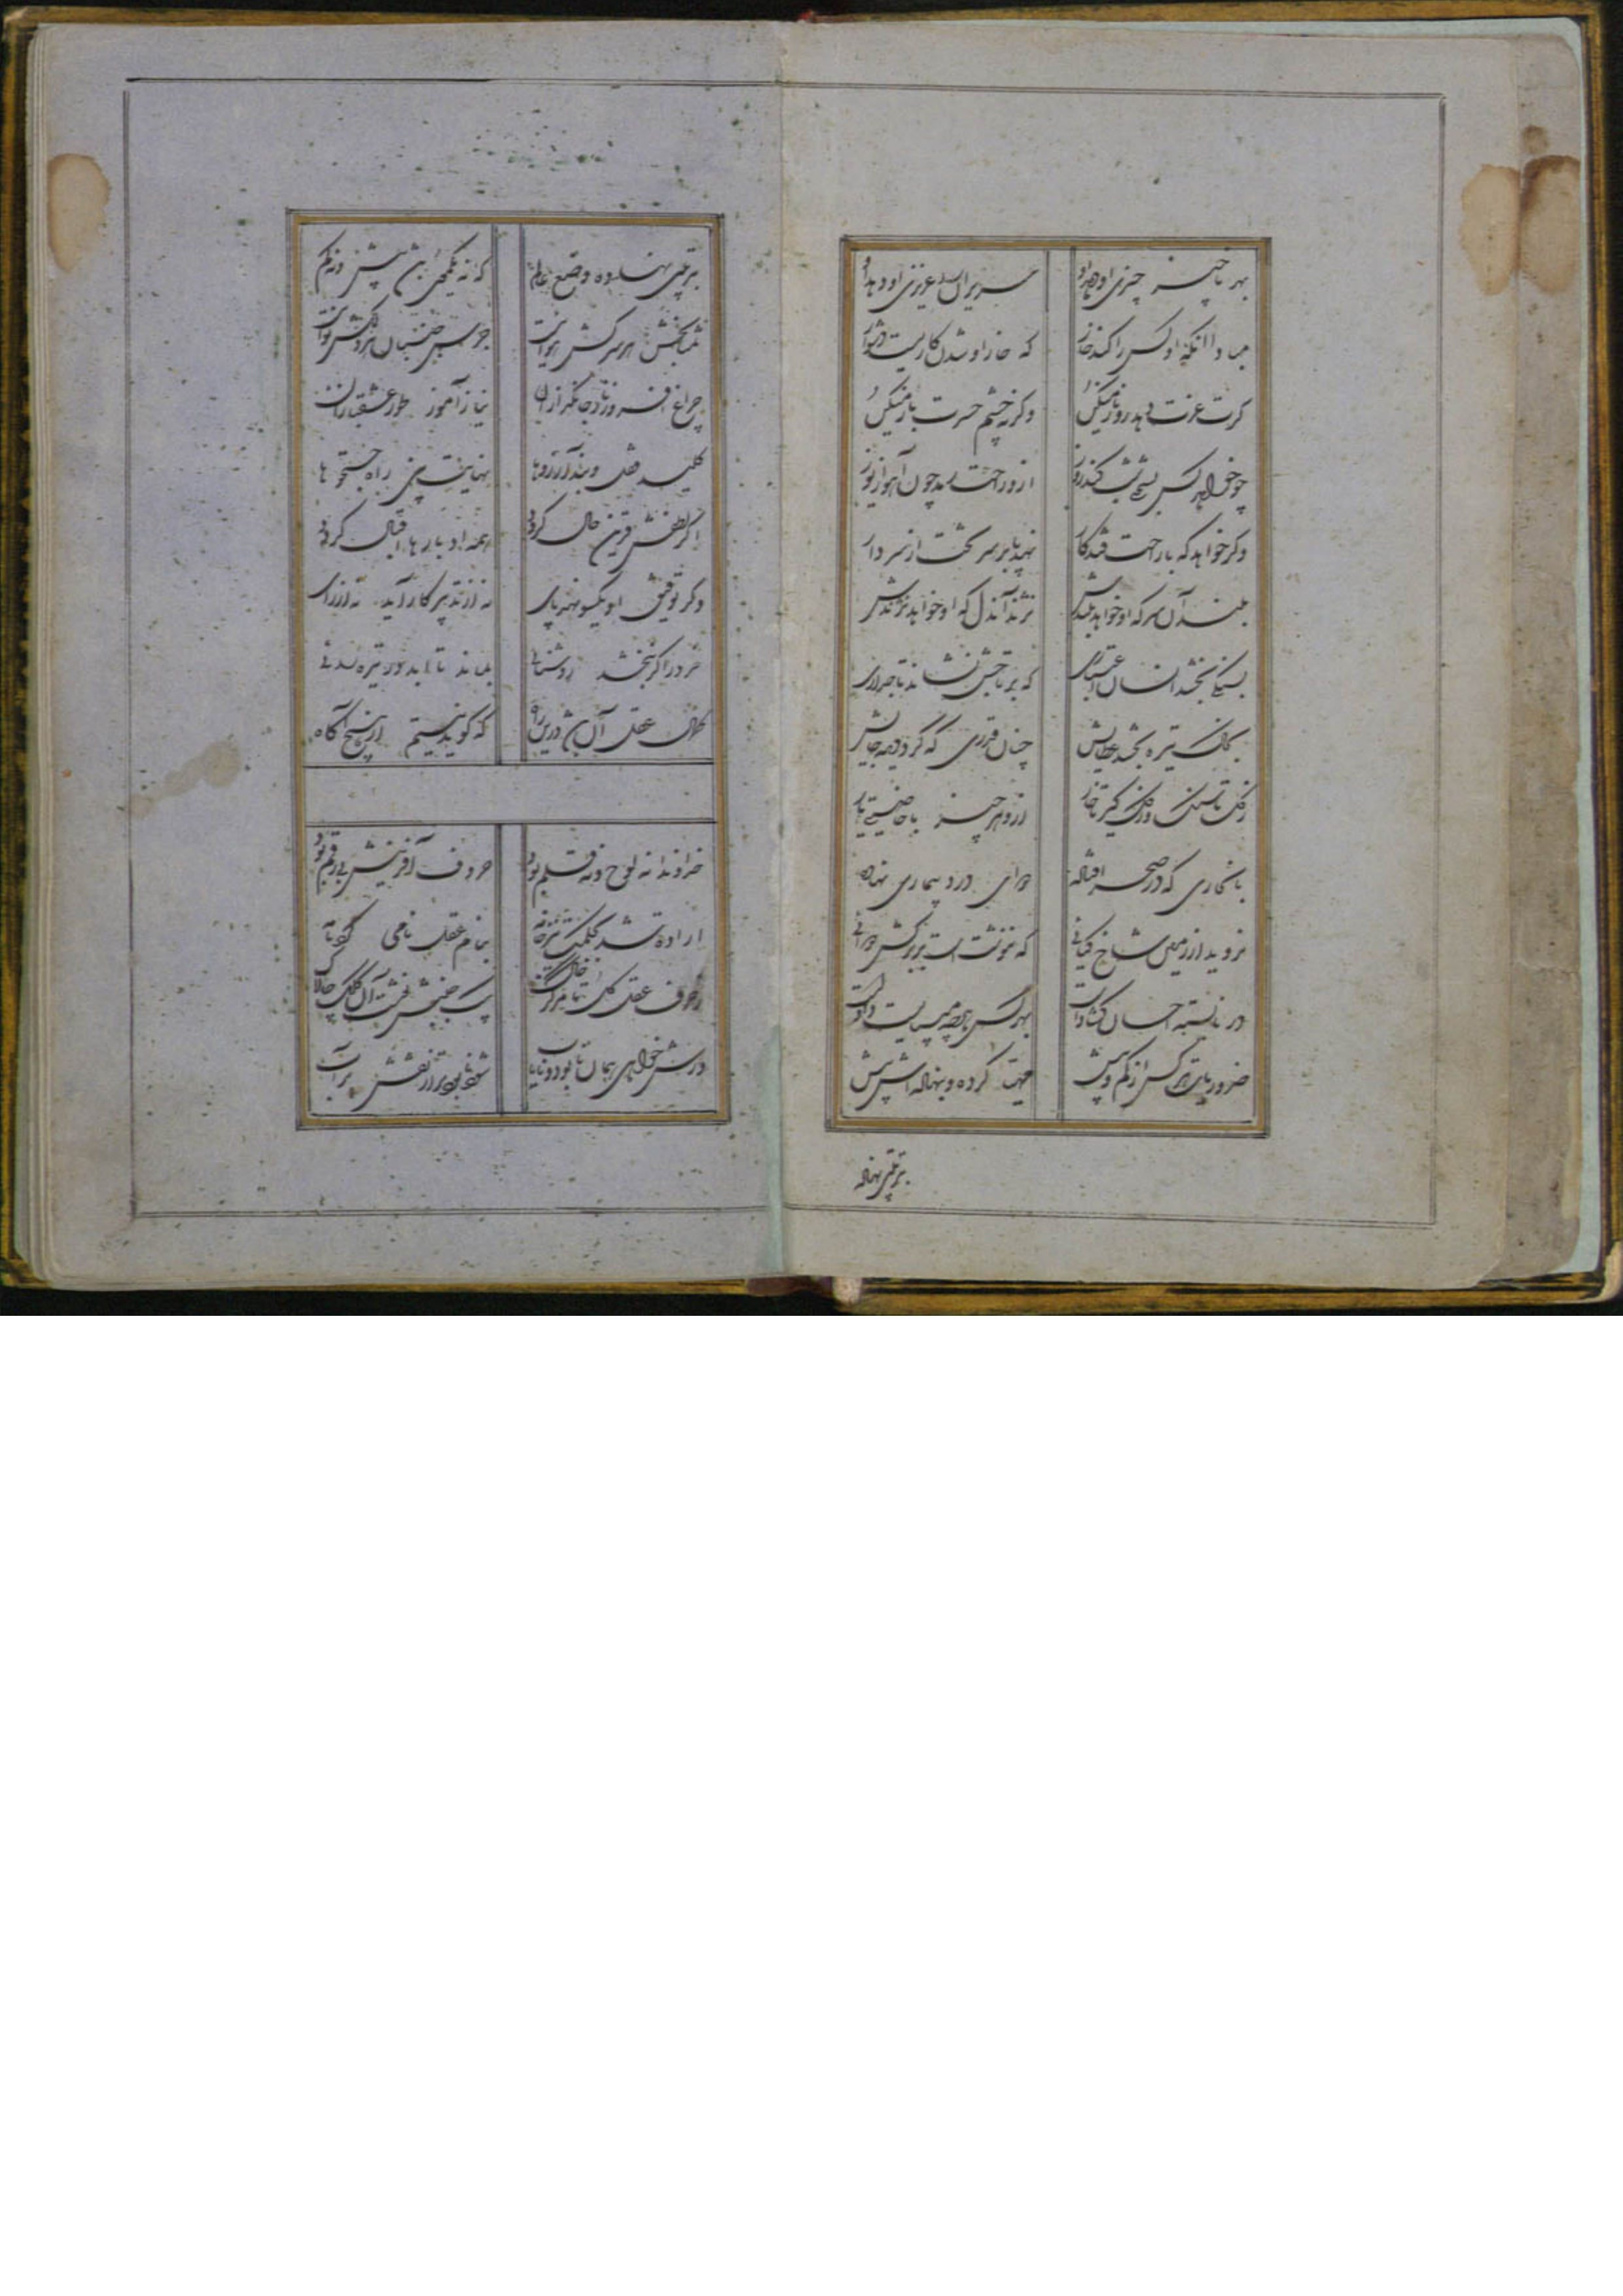 بهر ناچیز چیزی او دهد او
عزیزان را عزیزی او دهد او
مبادا آنکه او کس را کند خار
که خار او شدن کاریست دشوار
گرت عزت دهد رو ناز میکن
وگرنه چشم حسرت باز میکن
چو خواهد کس بسختی شب کند روز
ازو راحت رمد چون آهو از یوز
وگر خواهد که با راحت فتد کار
نهد پا بر سر تخت از سر دار
بلند آن سر که او خواهد بلندش
نژند آندل که او خواهد نژندش
بسنگی بخشد انسان اعتباری
که بر تاجش نشاند تاجداری
بخاک تیره بخشد عطایش
چنان قدری که گردد دیده جایش
ز گل تا سنگ وز گل گیر تا خار
ازو هر چیز با خاصیتی یار
بانخاری که در صحرا فتاده
دوای درد بیماری نهاده
نروید از زمین شاخ گیائی
که ننوشت است بر برگش دوائی
در نابسته احسان گشادست
بهر کس آنچه میبایست دادست
ضروریات هر کس از کم و بیش
مهیا کرده و بنهاده اش پیش
بترتیبی نهاده
بترتیبی نهاده وضع عالم
که نه یکموی باشد بیش و نه کم
تمنا بخش هر سرکش هوائیست
جرس جنبان هر دلکش نوائیست
چراغ افروز ناز جانگدازان
نیاز آموز طور عشقبازان
کلید قفل و بند آرزوها
نهایت بین راه جستجوها
اگر لطفش قرین حال گردد
همه ادبارها اقبال گردد
وگر توفیق او یکسو نهد پای
نه از تدبیر کار آید نه از رای
خرد را گر نبخشد روشنائی
بماند تا ابد در تیره
کمال عقل آن باشد درین راه
که گوید نیستم از هیچ آگاه
خداوندا نه لوح و نه قلم بود
حروف آفرینش بی رقم بود
اراده شد بحکمت تیز خامه
بنام عقل نامی کرد نامه
ز حرف عقل کل تا مرکز خاک
بیک جنبش نوشت آن کلک چالاک
ورش خواهی همان نابود و نایاب
شود نابودتر از نقش بر آب